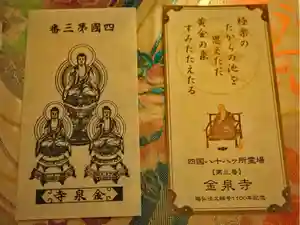 四國第三番
金泉寺
極楽の
たからの池を
思えただ
黄金の泉
すみたたえたる
四國八十八ヶ所霊場
【第三番】
金泉寺